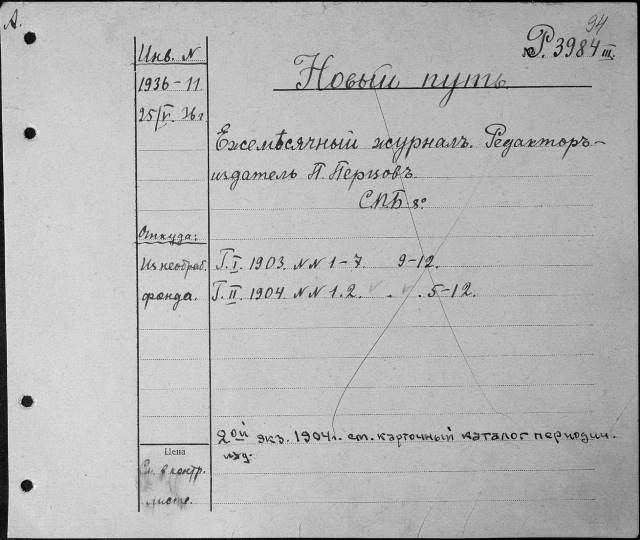 А.
94
№ Р. 3984 III.
Инв. N
1936-11
25/V. 36 г
Новый путь
Ежемѣсячный журналъ. Редакторъ-
издатель П. Перцовъ
СПБ 8°
Откуда:
Из необраб.
фонда.
Г. I. 1903. NN 1-7. 9-12.
Г. II. 1904. NN 1.2. . . 5-12.
2ой экз. 1904 г. см. карточный каталог периодич.
изд.
Цена
См. в контр.
листе.